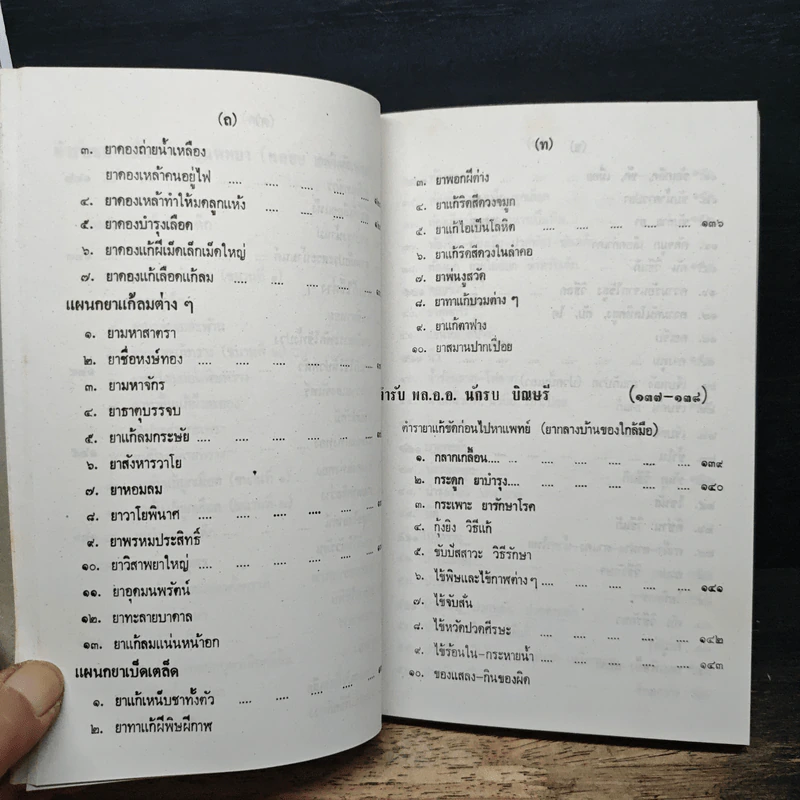 (ถ)
๓. ยาดองถ่ายน้ำเหลือง
ยาดองเหล้าคนอยู่ไฟ .... .... .... ....
๔. ยาดองเหล้าทำให้มดลูกแห้ง
๕. ยาดองบำรุงเลือด .... .... .... ....
๖. ยาดองแก้ฝีเม็ดเล็กเม็ดใหญ่
๗. ยาดองแก้เลือดแก้ลม .... .... .... ....
แผนกยาแก้ลมต่าง ๆ
๑. ยามหาสาดรา
๒. ยาชื่อหงษ์ทอง .... .... .... .... ....
๓. ยามหาจักร
๔. ยาธาตุบรรจบ .... .... .... .... ....
๕. ยาแก้ลมกระษัย .... .... .... ....
๖. ยาสังหารวาโย
๗. ยาหอมลม
๘. ยาวาโยพินาศ .... .... .... .... ....
๙. ยาพรหมประสิทธิ์
๑๐. ยาวิสาพยาใหญ่ .... .... .... ....
๑๑. ยาอุดมนพรัตน์
๑๒. ยาทะลายบาดาล
๑๓. ยาแก้ลมแน่นหน้าอก
แผนกยาเบ็ดเตล็ด
๑. ยาแก้เหน็บชาทั้งตัว .... .... .... ....
๒. ยาทาแก้ฝีพิษฝีกาฬ
(ท)
๓. ยาพอกฝีต่าง
๔. ยาแก้ริดสีดวงจมูก
๕. ยาแก้ไอเป็นโลหิต .... .... .... .... ๑๓๖
๖. ยาแก้ริดสีดวงในลำคอ
๗. ยาพ่นงูสวัด
๘. ยาทาแก้บวมต่าง ๆ
๙. ยาแก้ตาฟาง
๑๐. ยาสมานปากเปื่อย
ตำรับ พล.อ.อ. นักรบ บิณษรี (๑๓๗-๑๓๘)
ตำรายาแก้ขัดก่อนไปหาแพทย์ (ยากลางบ้านของใกล้มือ)
๑. กลากเกลื้อน.... .... .... .... .... ๑๓๙
๒. กระดูก ยาบำรุง.... .... .... .... .... ๑๔๐
๓. กระเพาะ ยารักษาโรค
๔. กุ้งยิง วิธีแก้
๕. ขับปัสสาวะ วิธีรักษา
๖. ไข้พิษและไข้กาฬต่างๆ .... .... .... ๑๔๑
๗. ไข้จับสั่น
๘. ไข้หวัดปวดศีรษะ .... .... .... .... ๑๔๒
๙. ไข้ร้อนใน-กระหายน้ำ .... .... .... .... ๑๔๓
๑๐. ของแสลง-กินของผิด